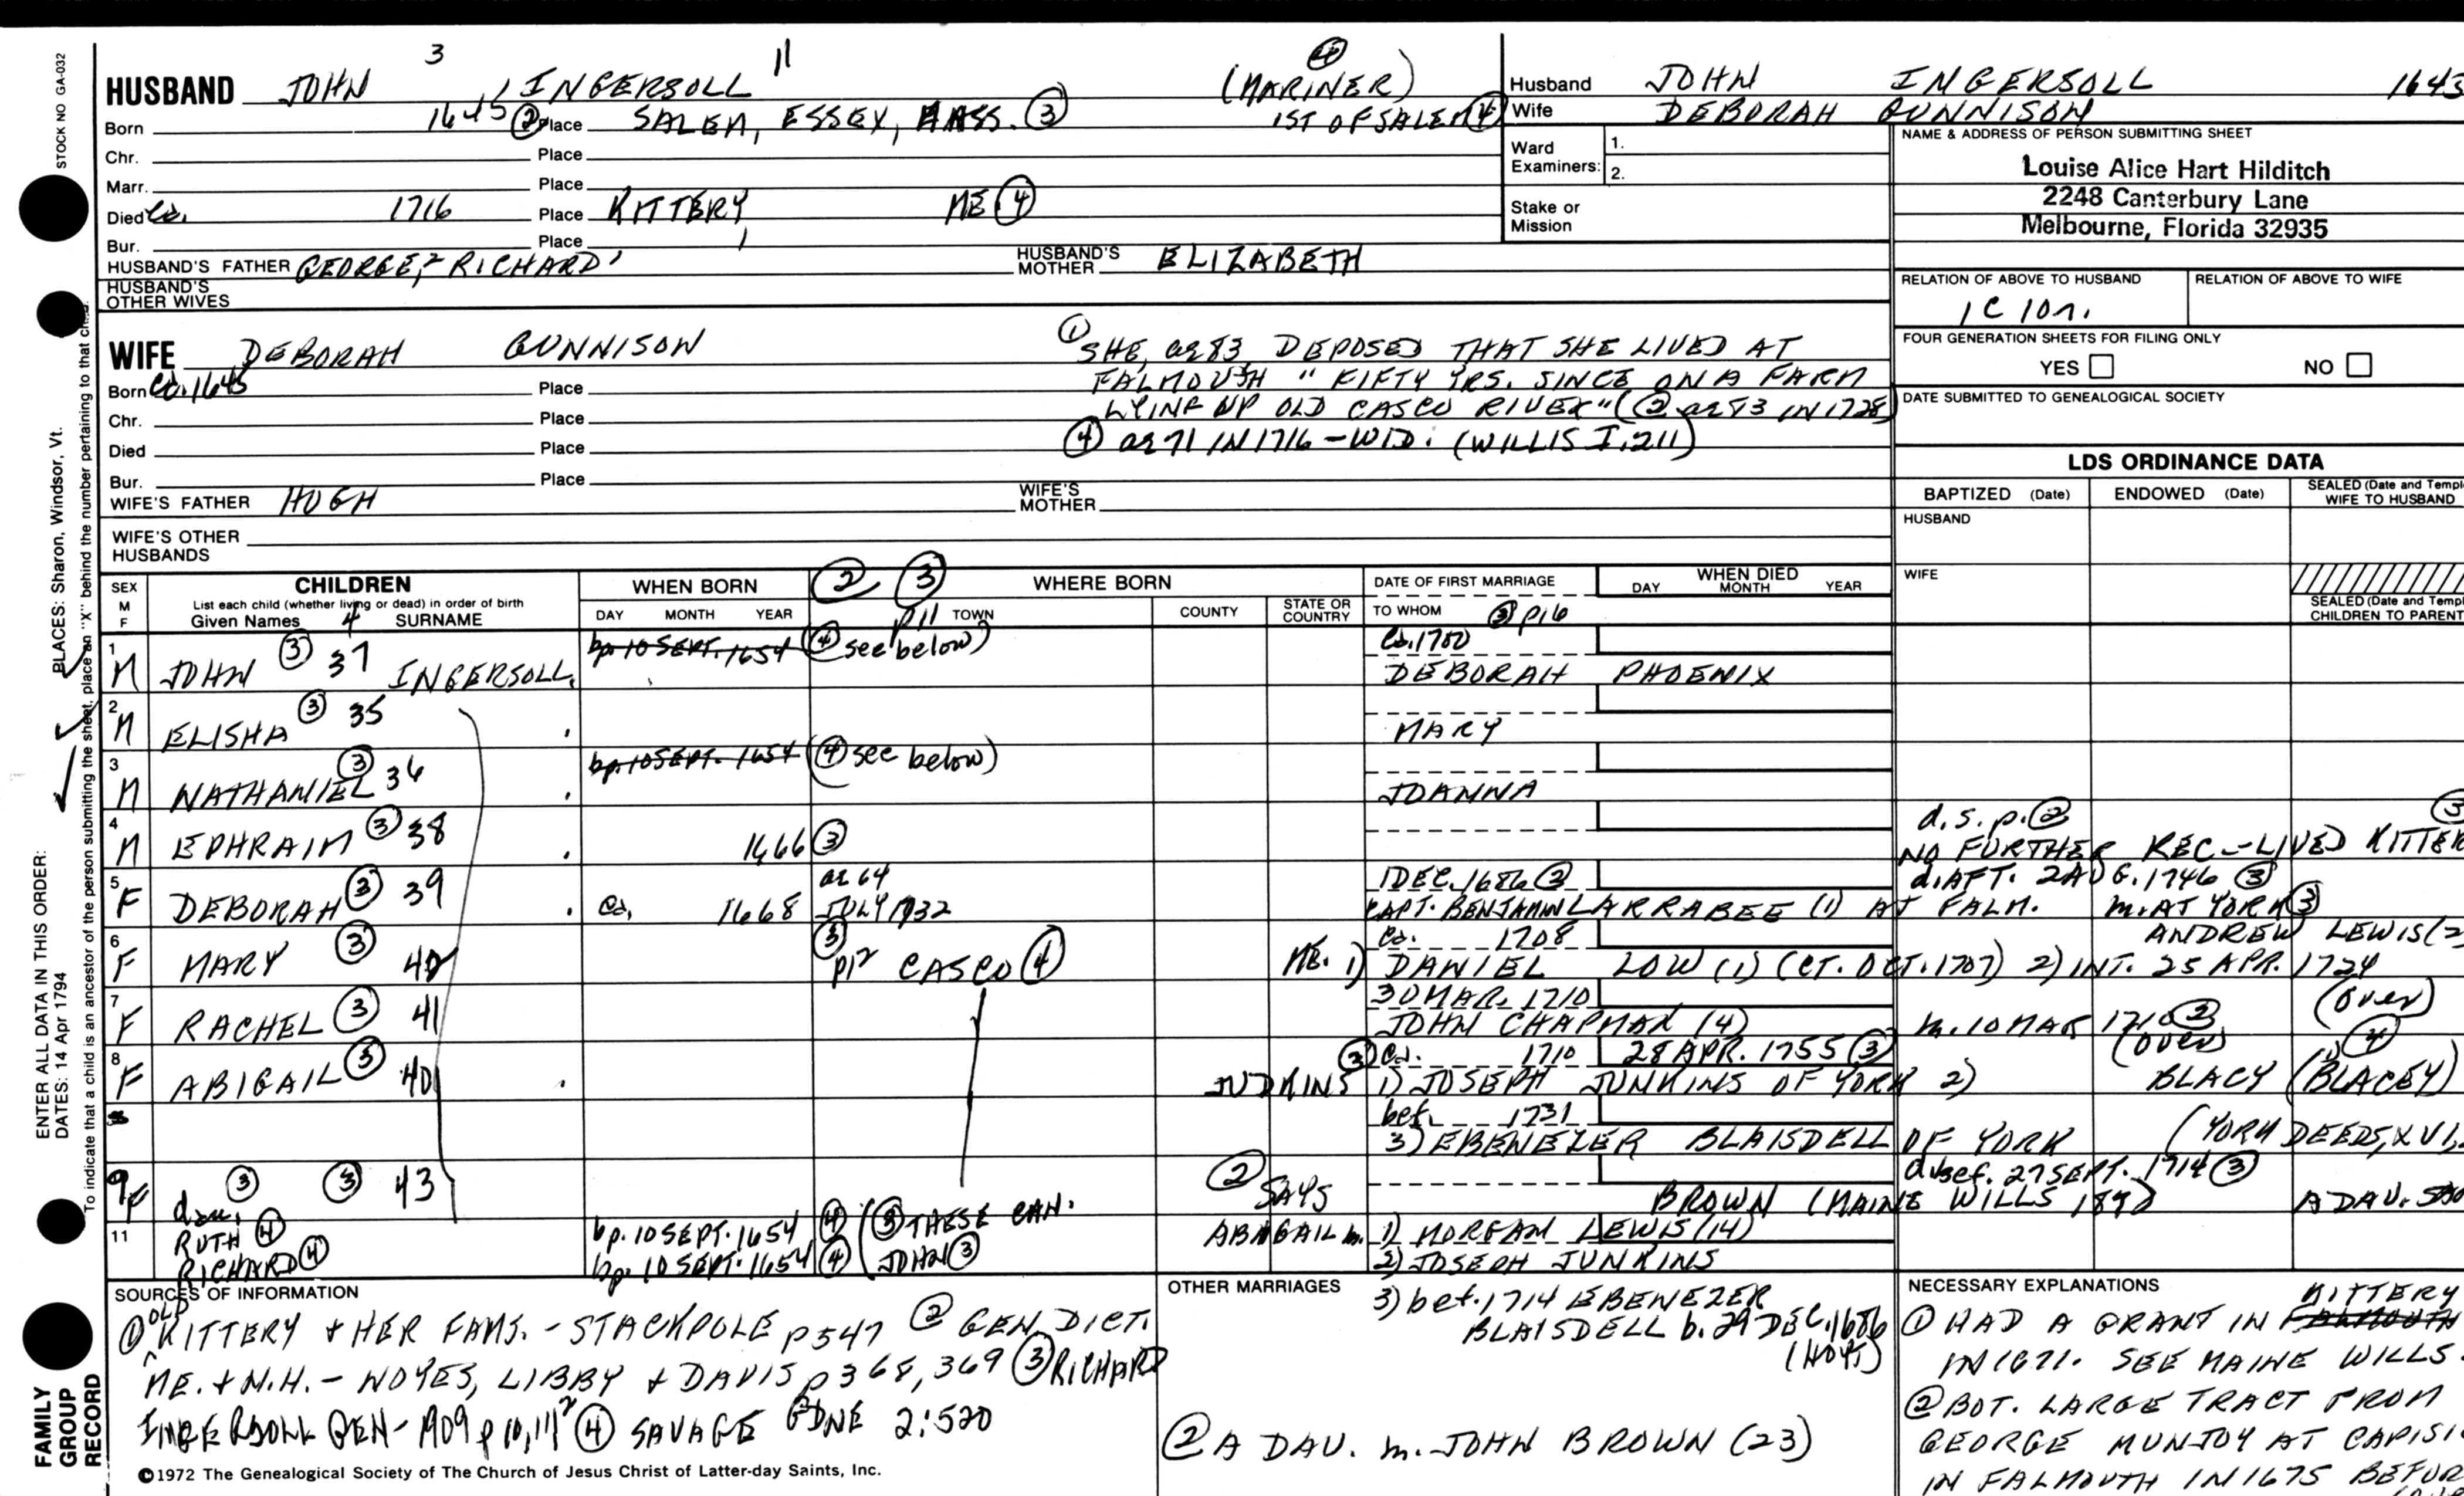 STOCK NO GA-032
PLACES: Sharon, Windsor, Vt.
ENTER ALL DATA IN THIS ORDER:
DATES: 14 Apr 1794
To indicate that a child is an ancestor of the person submitting the sheet, place an "X" behind the number pertaining to that child.
FAMILY GROUP RECORD
3 11 ④
HUSBAND JOHN INGERSOLL (MARINER)
Born 1645 ② Place SALEM, ESSEX, MASS. ③ 1ST OF SALEM ④
Chr. Place
Marr. Place
Died Ca. 1716 Place KITTERY ME ④
Bur. Place
HUSBAND'S FATHER GEORGE,² RICHARD¹ HUSBAND'S MOTHER ELIZABETH
HUSBAND'S OTHER WIVES
WIFE DEBORAH GUNNISON
Born Ca. 1645 Place
Chr. Place
Died Place
Bur. Place
① SHE, ae 83, DEPOSED THAT SHE LIVED AT
FALMOUTH "FIFTY YRS. SINCE ON A FARM
LYING UP OLD CASCO RIVER" (② ae 83 IN 1728)
④ ae 71 IN 1716 - WID. (WILLIS I, 211)
WIFE'S FATHER HUGH WIFE'S MOTHER
WIFE'S OTHER HUSBANDS
Husband JOHN INGERSOLL 1643
Wife DEBORAH GUNNISON
Ward Examiners: 1.
2.
Stake or Mission
NAME & ADDRESS OF PERSON SUBMITTING SHEET
Louise Alice Hart Hilditch
2248 Canterbury Lane
Melbourne, Florida 32935
RELATION OF ABOVE TO HUSBAND RELATION OF ABOVE TO WIFE
1C 10r.
FOUR GENERATION SHEETS FOR FILING ONLY
YES NO
DATE SUBMITTED TO GENEALOGICAL SOCIETY
LDS ORDINANCE DATA
BAPTIZED (Date) ENDOWED (Date) SEALED (Date and Templ
WIFE TO HUSBAND
HUSBAND
WIFE
SEALED (Date and Templ
CHILDREN TO PARENT
SEX M F CHILDREN WHEN BORN ② ③ WHERE BORN DATE OF FIRST MARRIAGE WHEN DIED
List each child (whether living or dead) in order of birth
Given Names 4 SURNAME DAY MONTH YEAR p11 TOWN COUNTY STATE OR COUNTRY TO WHOM ③ p16 DAY MONTH YEAR
1 M JOHN ③ 37 INGERSOLL bp. 10 SEPT. 1654 (④ see below) Ca. 1700
DEBORAH PHOENIX
2 M ELISHA ③ 35 MARY
3 M NATHANIEL ③ 36 bp. 10 SEPT. 1654 (④ see below) JOANNA
4 M EPHRAIM ③ 38 1666 ③ d.s.p. ②
NO FURTHER REC. - LIVED KITTER
5 F DEBORAH ③ 39 Ca. 1668 ae 64 JULY 1732 1 DEC. 1686 ③ d. AFT. 2 AUG. 1746 ③
CAPT. BENJAMIN LARRABEE (1) AT FALM. m. AT YORK ③
ANDREW LEWIS (2
6 F MARY ③ 40 ③ p12 CASCO ④ ME. Ca. 1708
1) DANIEL LOW (1) (CT. OCT. 1707) 2) INT. 25 APR. 1724
(over)
7 F RACHEL ③ 41 30 MAR. 1710
JOHN CHAPMAN (4) m. 10 MAR 1710 ②
(over)
8 F ABIGAIL ③ 40 ③ Ca. 1710 28 APR. 1755 ③
JUDKINS 1) JOSEPH JUNKINS OF YORK 2) BLACY (BLACEY) ④
bef. 1731
3) EBENEZER BLAISDELL OF YORK (YORK DEEDS, XVI,
9 F dau. ③ ③ 43 d. bef. 27 SEPT. 1714 ③
BROWN (MAINE WILLS 189) A DAU.
② SAYS
11 RUTH ④ bp. 10 SEPT. 1654 ④ (③ THESE CAN. ABIGAIL m. 1) MORGAN LEWIS (14)
RICHARD ④ bp. 10 SEPT. 1654 ④ (JOHN ③ 2) JOSEPH JUNKINS
SOURCES OF INFORMATION
① OLD KITTERY & HER FAMS. - STACKPOLE p547 ② GEN. DICT.
ME. & N.H. - NOYES, LIBBY & DAVIS p368, 369 ③ RICHARD
INGERSOLL GEN - 1909 p 10, 11, 12 ④ SAVAGE GDNE 2:520
©1972 The Genealogical Society of The Church of Jesus Christ of Latter-day Saints, Inc.
OTHER MARRIAGES
3) bet. 1714 EBENEZER
BLAISDELL b. 29 DEC. 1686
(HOYT)
② A DAU. m. JOHN BROWN (23)
NECESSARY EXPLANATIONS
KITTERY
① HAD A GRANT IN FALMOUTH
IN 1671. SEE MAINE WILLS.
② BOT. LARGE TRACT FROM
GEORGE MUNJOY AT CAPISI
IN FALMOUTH IN 1675 BEFOR